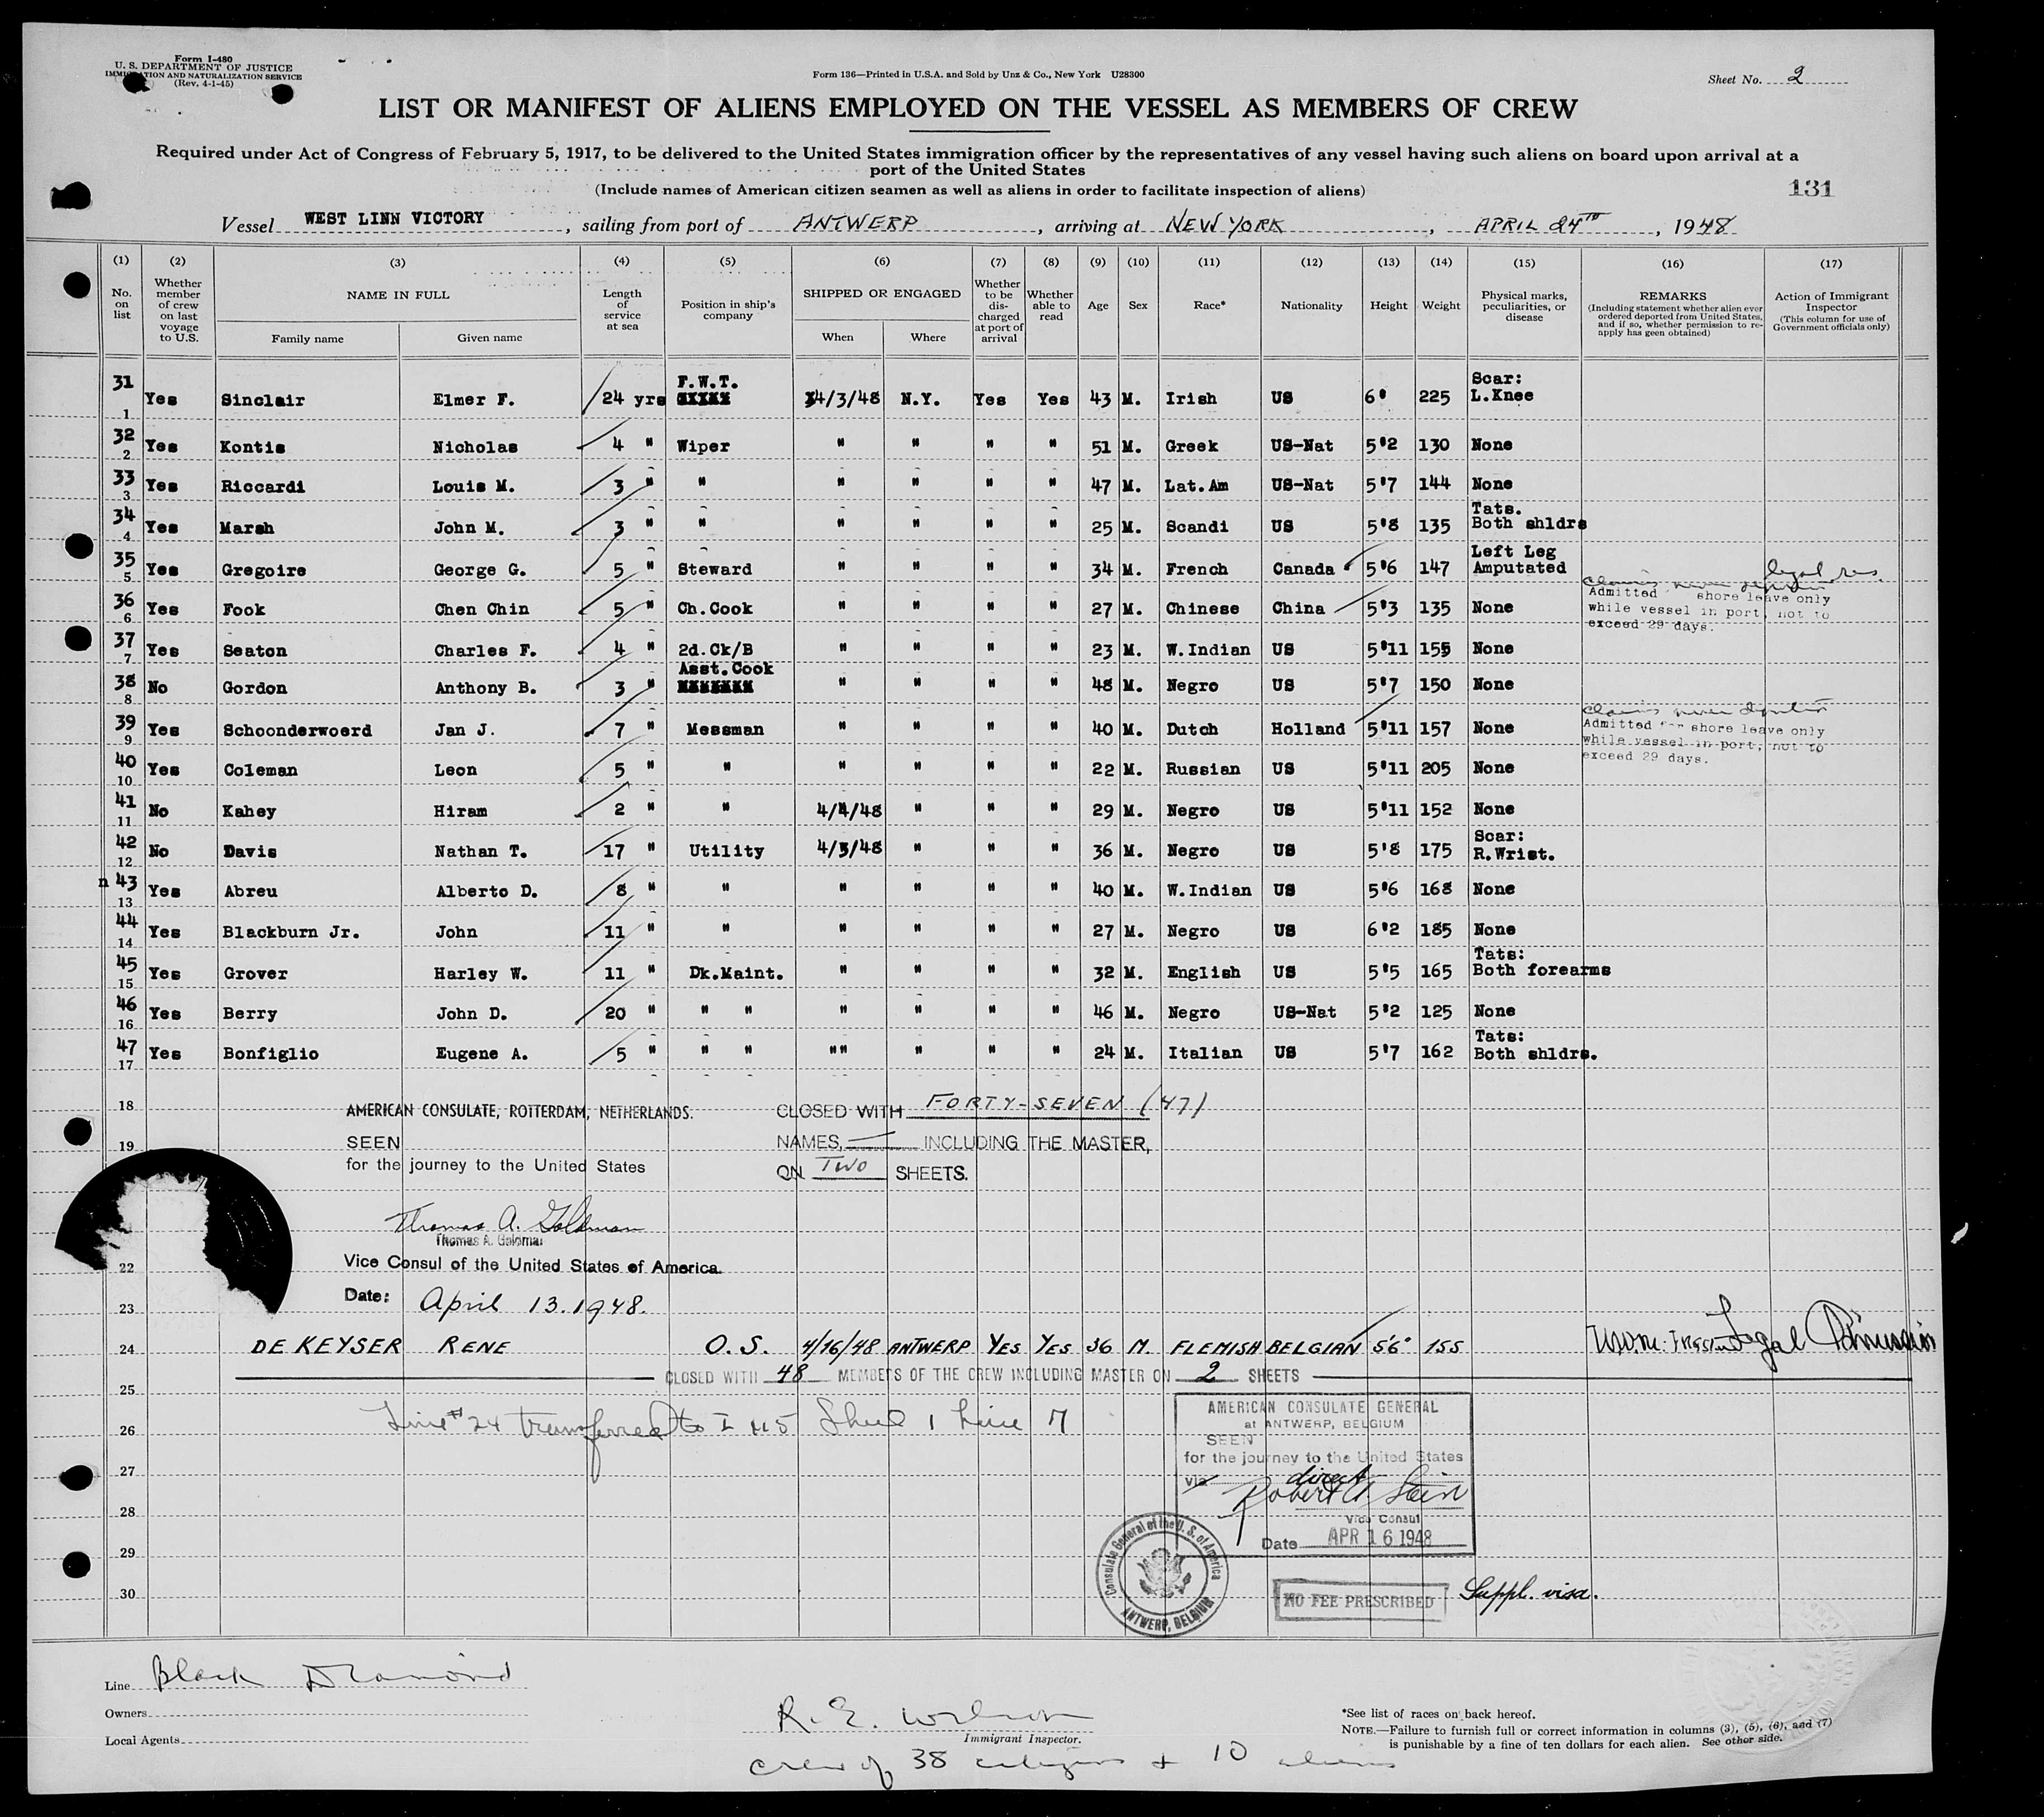 Form I-480
U. S. DEPARTMENT OF JUSTICE
IMMIGRATION AND NATURALIZATION SERVICE
(Rev. 4-1-45)
Form 136—Printed in U.S.A. and Sold by Unz & Co., New York U28300
Sheet No. 2
LIST OR MANIFEST OF ALIENS EMPLOYED ON THE VESSEL AS MEMBERS OF CREW
Required under Act of Congress of February 5, 1917, to be delivered to the United States immigration officer by the representatives of any vessel having such aliens on board upon arrival at a
port of the United States
(Include names of American citizen seamen as well as aliens in order to facilitate inspection of aliens)
131
Vessel WEST LINN VICTORY, sailing from port of ANTWERP, arriving at NEW YORK, APRIL 24TH, 1948
(1) (2) (3) (4) (5) (6) (7) (8) (9) (10) (11) (12) (13) (14) (15) (16) (17)
No. on list
Whether member of crew on last voyage to U.S.
NAME IN FULL
Family name
Given name
Length of service at sea
Position in ship's company
SHIPPED OR ENGAGED
When
Where
Whether to be discharged at port of arrival
Whether able to read
Age
Sex
Race*
Nationality
Height
Weight
Physical marks, peculiarities, or disease
REMARKS
(Including statement whether alien ever ordered deported from United States, and if so, whether permission to re-apply has geen obtained)
Action of Immigrant Inspector
(This column for use of Government officials only)
31 1 Yes Sinclair Elmer F. 24 yrs F.W.T. 4/3/48 N.Y. Yes Yes 43 M. Irish US 6' 225 Scar: L.Knee
32 2 Yes Kontis Nicholas 4 " Wiper " " " " 51 M. Greek US-Nat 5'2 130 None
33 3 Yes Riccardi Louis M. 3 " " " " " " 47 M. Lat.Am US-Nat 5'7 144 None
34 4 Yes Marsh John M. 3 " " " " " " 25 M. Scandi US 5'8 135 Tats. Both shldrs
35 5 Yes Gregoire George G. 5 " Steward " " " " 34 M. French Canada 5'6 147 Left Leg Amputated legal res.
36 6 Yes Fook Chen Chin 5 " Ch.Cook " " " " 27 M. Chinese China 5'3 135 None
Admitted shore leave only
while vessel in port, not to
exceed 29 days.
37 7 Yes Seaton Charles F. 4 " 2d.Ck/B " " " " 23 M. W.Indian US 5'11 155 None
38 8 No Gordon Anthony B. 3 " Asst.Cook " " " " 48 M. Negro US 5'7 150 None
39 9 Yes Schoonderwoerd Jan J. 7 " Messman " " " " 40 M. Dutch Holland 5'11 157 None
Admitted for shore leave only
while vessel in port, not to
exceed 29 days.
40 10 Yes Coleman Leon 5 " " " " " " 22 M. Russian US 5'11 205 None
41 11 No Kahey Hiram 2 " " 4/4/48 " " " 29 M. Negro US 5'11 152 None
42 12 No Davis Nathan T. 17 " Utility 4/3/48 " " " 36 M. Negro US 5'8 175 Scar: R.Wrist.
n 43 13 Yes Abreu Alberto D. 8 " " " " " " 40 M. W.Indian US 5'6 168 None
44 14 Yes Blackburn Jr. John 11 " " " " " " 27 M. Negro US 6'2 185 None
45 15 Yes Grover Harley W. 11 " Dk.Maint. " " " " 32 M. English US 5'5 165 Tats: Both forearms
46 16 Yes Berry John D. 20 " " " " " " " 46 M. Negro US-Nat 5'2 125 None
47 17 Yes Bonfiglio Eugene A. 5 " " " "" " " " 24 M. Italian US 5'7 162 Tats: Both shldrs.
18 AMERICAN CONSULATE, ROTTERDAM, NETHERLANDS. CLOSED WITH FORTY-SEVEN (47)
19 SEEN NAMES, INCLUDING THE MASTER,
for the journey to the United States ON TWO SHEETS.
Thomas A. Goldman
Thomas A. Goldman
22 Vice Consul of the United States of America.
23 Date: April 13. 1948.
24 DE KEYSER RENE O.S. 4/16/48 ANTWERP YES YES 36 M. FLEMISH BELGIAN 5'6" 155 Legal Admission
CLOSED WITH 48 MEMBERS OF THE CREW INCLUDING MASTER ON 2 SHEETS
25
26 Line #24 transferred to I 415 Sheet 1 Line 7
27
28
29
30
AMERICAN CONSULATE GENERAL
at ANTWERP, BELGIUM
SEEN
for the journey to the United States
via direct
Robert Stein
Vice Consul
Date APR 16 1948
Consulate General of the U. S. of America
ANTWERP, BELGIUM
NO FEE PRESCRIBED
Suppl. visa.
Line Black Diamond
Owners
Local Agents
R. E. Wilson
Immigrant Inspector.
crew of 38 citizens + 10 aliens
*See list of races on back hereof.
NOTE.—Failure to furnish full or correct information in columns (3), (5), (6), and (7)
is punishable by a fine of ten dollars for each alien. See other side.